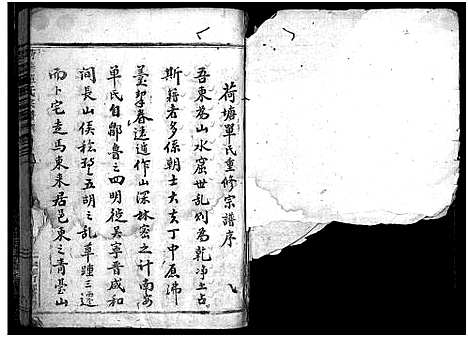 荷塘單氏重修宗譜序
吾東為山水窟世亂則為乾淨土占
斯籍者多係朝士大夫丁中原沸
羹挈眷遠道作山深林密之計南安
單氏自鄒魯之四明從吳寧晉咸和
間長山侯稔五胡之亂草踵三遷
而卜宅走馬東来居邑東之青臺山